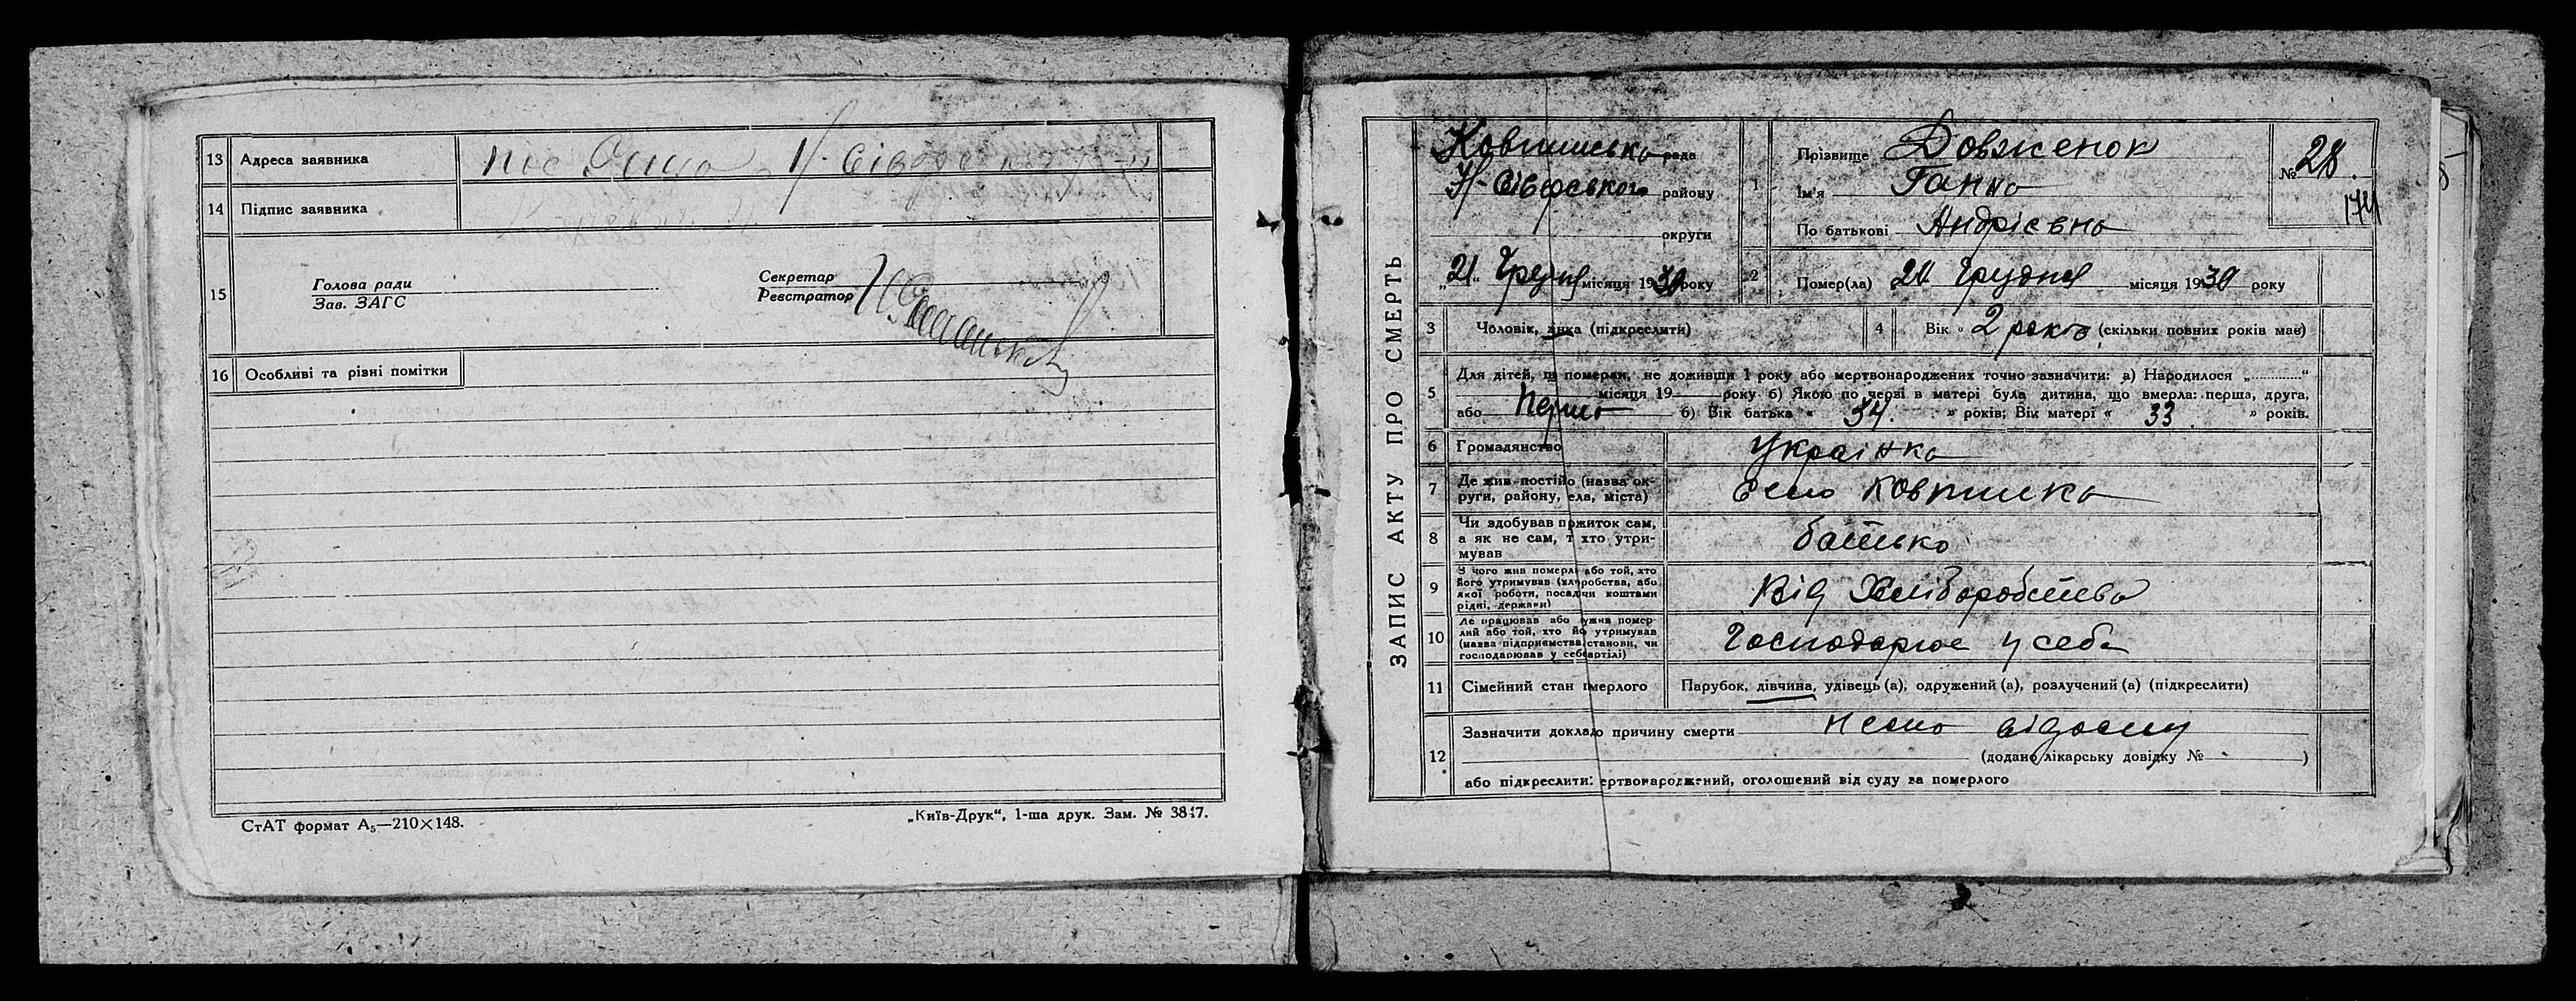 13 Адреса заявника
14 Підпис заявника
15 Голова ради
Зав. ЗАГС
Секретар
Реєстратор
16 Особливі та різні помітки
СтАТ формат А₅—210×148.
„Київ-Друк“, 1-ша друк. Зам. № 3817.
ЗАПИС АКТУ ПРО СМЕРТЬ
Ковпинська рада
Н-Сіверського району
округи
„21“ Грудня місяця 1930 року
1 Прізвище Довженок
Ім'я Ганна
По батькові Андрієвна
№ 28.
174
2 Помер(ла) Грудня місяця 1930 року
3 Чоловік, жінка (підкреслити)
4 Вік „ 2 рока (скільки повних років мав)
5 Для дітей, що померли, не доживши 1 року або мертвонароджених точно зазначити: а) Народилося „............“
місяця 19 року б) Якою по черзі в матері була дитина, що вмерла: перша, друга,
або перша б) Вік батька « 34. » років; Вік матері « 33. » років.
6 Громадянство Українка
7 Де жив постійно (назва округи, району, села, міста) Село Ковпинка
8 Чи здобував прожиток сам,
а як не сам, то хто утри-
мував батько
9 З чого жив померлий або той, хто
його утримував (хліборобства, або
якої роботи, посади чи коштами
рідні, держави) Від Хліборобства
10 Де працював або служив помер-
лий або той, хто його утримував
(назва підприємства, установи, чи
господарював у себе, артілі) Господарює у себе
11 Сімейний стан померлого Парубок, дівчина, удівець (а), одружений (а), розлучений (а) (підкреслити)
12 Зазначити докладно причину смерти
(додано лікарську довідку № )
або підкреслити: мертвонароджений, оголошений від суду за померлого